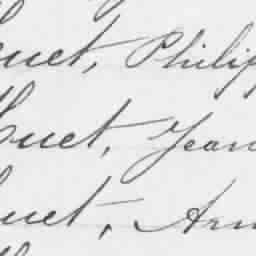 Huet, Philip
Huet, Jean
Huet, Arm